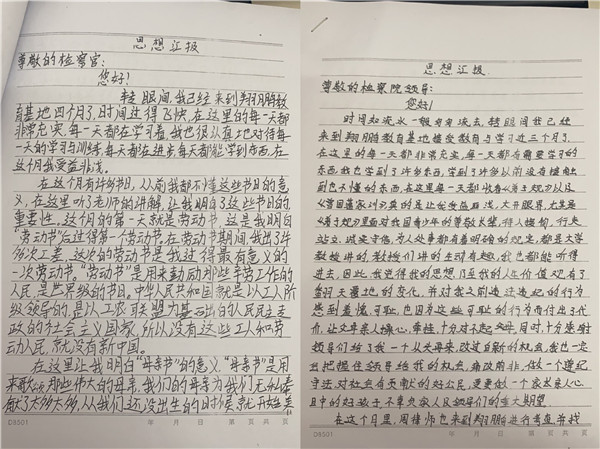 思想汇报
尊敬的检察官:
您好!
转眼间,我已经来到翔鹏教
育基地四个月了,时间过得飞快,在这里的每一天都
非常充实,每一天都在学习着,我也很认真地对待每
一天的学习与训练,每天都在进步,每天都能学到东西,在
这个月我受益非浅。
在这个月有许多节日,从前我都不懂这些节日的意
义,在这里听了老师的讲解,让我明白了这些节日的
重要性。这个月的第一天就是劳动节,这是我明白
“劳动节”后过得第一个劳动节,在劳动节期间,我出了许
多次工差,这次的劳动节是我过得最有意义的
一次劳动节。“劳动节”是用来鼓励那些辛苦工作的
人民,是世界级的节日。中华人民共和国就是以工人阶
级领导的,是以工农联盟为基础的人民民主专
政的社会主义国家,所以没有这些工人和劳
动人民,就没有新中国。
在这里让我明白“母亲节”的意义,“母亲节”是用
来歌颂那些伟大的母亲,我们的母亲为我们无私奉
献了太多太多,从我们还没出生的时候就开始美
D8501 年 月 日 第 页 共 页
思想汇报
尊敬的检察院领导:
您好!
时间如流水一般匆匆流去,转眼间我已经
来到翔鹏教育基地接受教育与学习近三个月了,
在这里的每一天都非常充实,每一天都有需要学习的
东西,我也学到了许多东西,学到了许多以前没有接触
到也不懂的东西,在这里每一天都收看《弟子规》以及
《曾国藩家训》真的是让我受益匪浅,大开眼界,尤其是
《弟子规》里面对我国青少年的尊敬长辈,待人接物,行走
站立,诚实守信,为人处事都有着明确的规定,都是大学
教授讲的,教授们讲的生动有趣,我也都能听得
进去,因此,我觉得我的思想乃至我的人生价值观有了
翻天覆地的变化,并对我之前违法违纪的行为
感到羞愧可耻,也因为这些可耻的行为而付出了代
价,让父母亲人操心,牵挂,十分对不起父母,同时十分感谢
领导们给了我一个从头再来,改过自新的机会,我也一定
会把握住领导给我的机会,痛改前非,做一个遵纪
守法对社会有贡献的好公民,更要做一个家长亲人心
目中的好孩子,不辜负家人民领导们的重大期望。
在这个月里,周律师也来到翔鹏进行考查,并找
D8501 年 月 日 第 页 共 页